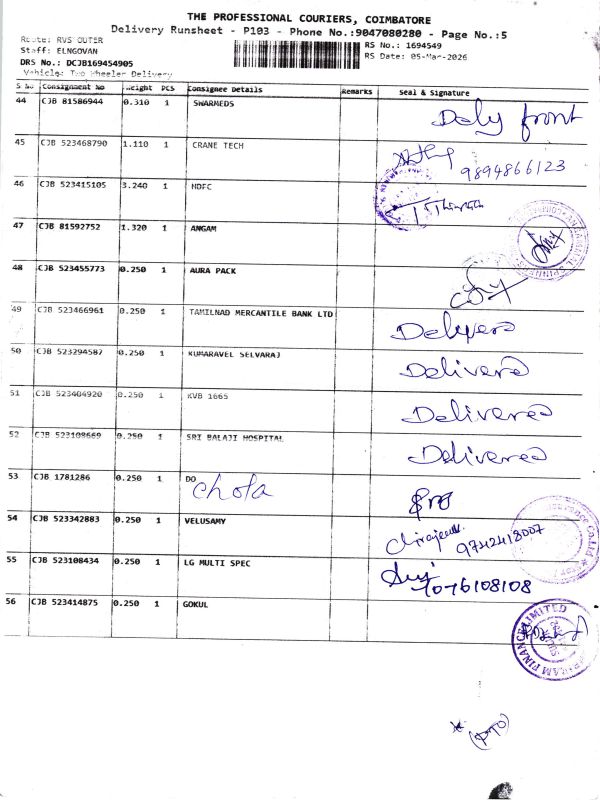 THE PROFESSIONAL COURIERS, COIMBATORE
Delivery Runsheet - P103 - Phone No.:9047080280 - Page No.:5
Route: RVS OUTER
Staff: ELNGOVAN
RS No.: 1694549
RS Date: 05-Mar-2026
DRS No.: DCJB169454905
Vehicle: Two Wheeler Delivery
S No Consignment No Weight PCS Consignee Details Remarks Seal & Signature
44 CJB 81586944 0.310 1 SWARMEDS Daly front
45 CJB 523468790 1.110 1 CRANE TECH 9894866123
46 CJB 523415105 3.240 1 HDFC
47 CJB 81592752 1.320 1 ANGAM
48 CJB 523455773 0.250 1 AURA PACK
49 CJB 523466961 0.250 1 TAMILNAD MERCANTILE BANK LTD
50 CJB 523294587 0.250 1 KUMARAVEL SELVARAJ Delivered
51 CJB 523404920 0.250 1 KVB 1665 Delivered
52 CJB 523108669 0.250 1 SRI BALAJI HOSPITAL Delivered
53 CJB 1781286 0.250 1 DO
chola
54 CJB 523342883 0.250 1 VELUSAMY 9742418007
55 CJB 523108434 0.250 1 LG MULTI SPEC
56 CJB 523414875 0.250 1 GOKUL
FINANCE LIMITED